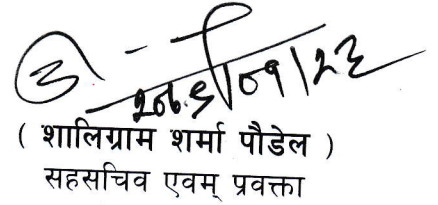 २०७९/०१/२३
( शालिग्राम शर्मा पौडेल )
सहसचिव एवम् प्रवक्ता